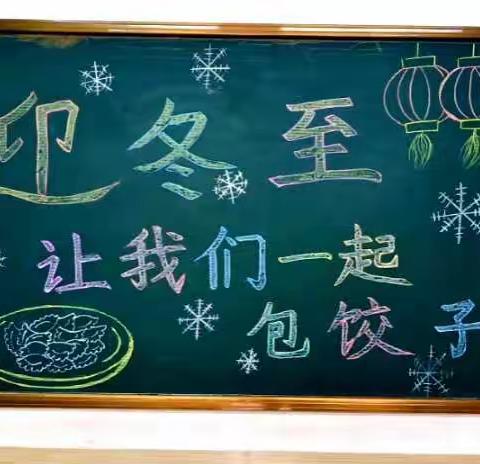 迎冬至
让我们一起
包饺子